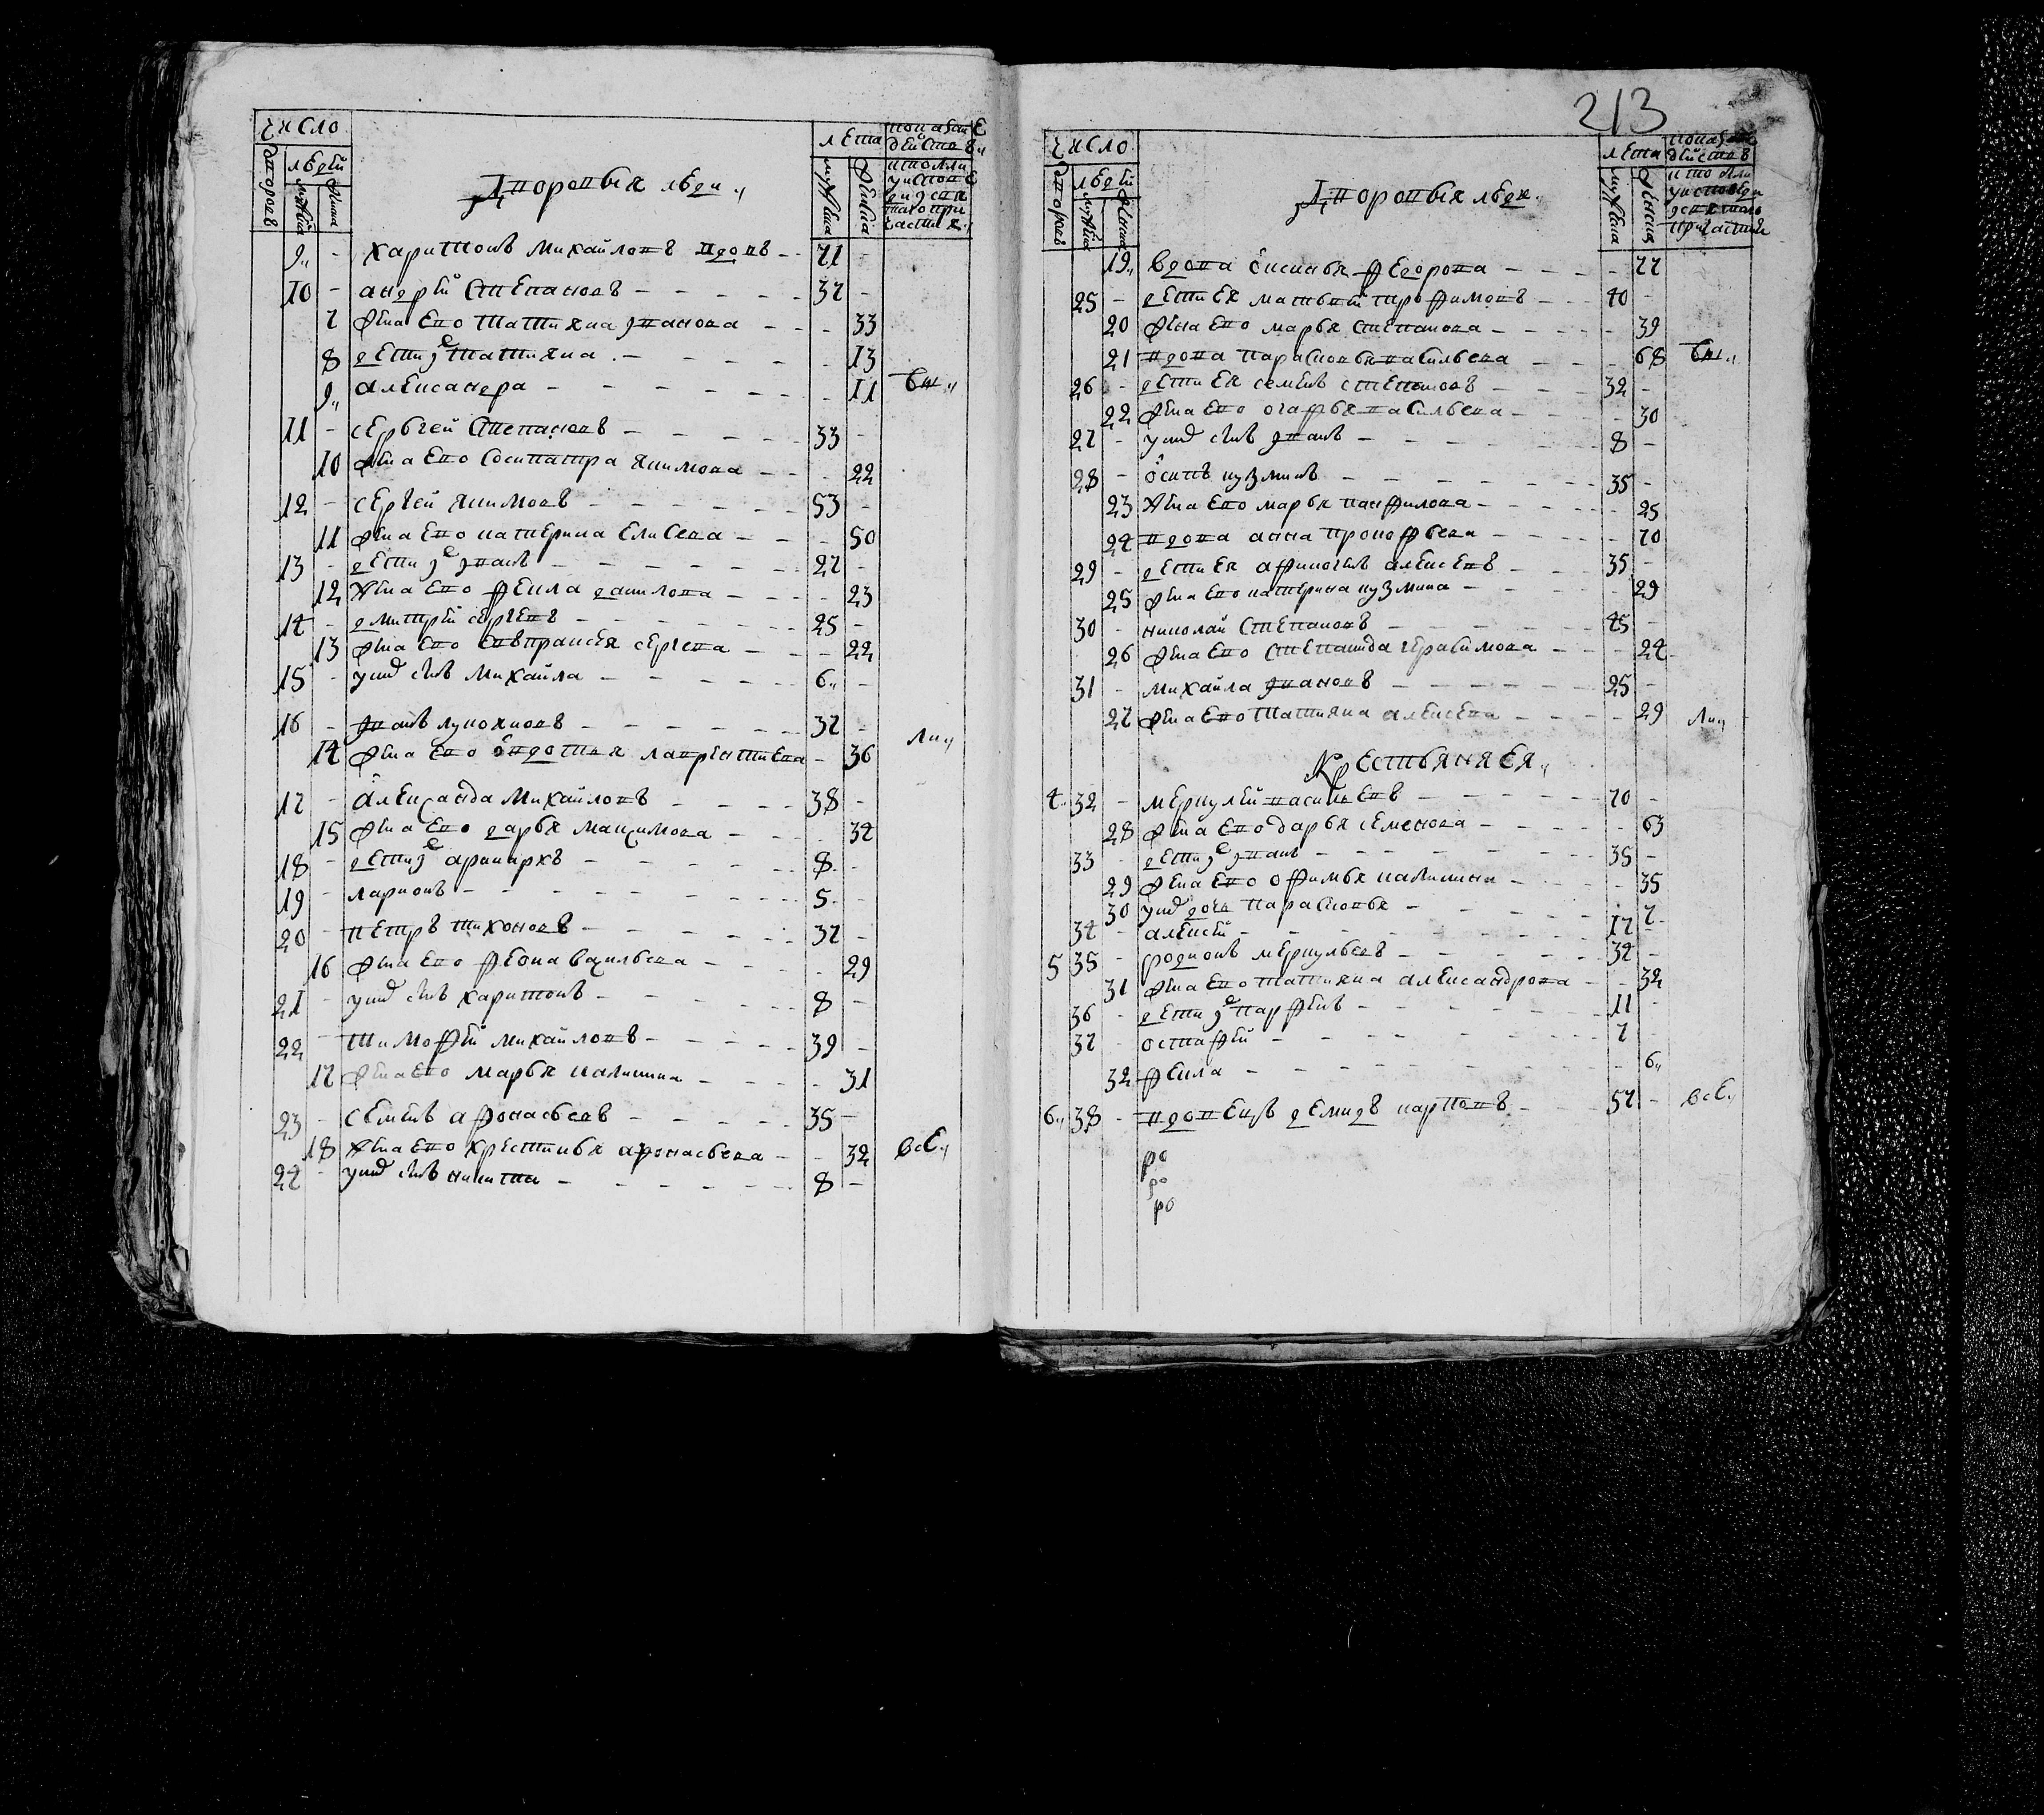 число
дворовъ
людей
мужеска
женска
Дворовыя люди
лета
мужеска
женска
9 - Харитонъ Михайловъ вдовъ - - 71 -
10 - андрей Степановъ - - - - - 37 -
7 жена Ево Татияна Иванова - - - - 33
8 дети ихъ Татияна - - - - - 13
9 Александра - - - - - 11
11 - Сергеи Степановъ - - - - - 33 -
10 жена Ево Сосипатра Якимова - - - 22
12 - Сергеи Якимовъ - - - - - 53 -
11 жена Ево катерина Елисева - - - 50
13 - дети ихъ Иванъ - - - - - 27 -
12 жена Ево Фекла данилова - - - - 23
14 - дмитрей сергеевъ - - - - - 25 -
13 жена Ево Евпраксея сергева - - - 22
15 - у них сынъ Михайла - - - - - 6 -
16 - Иванъ лукояновъ - - - - - 37 -
14 жена Ево Авдотья лаврентиева - 36
17 - Александра Михайловъ - - - - 38 -
15 жена Ево дарья Максимова - - - 34
18 - дети ихъ аристархъ - - - - 8 -
19 - ларионъ - - - - - 5 -
20 - петръ тихоновъ - - - - - 37 -
16 жена Ево Федна васильева - - - - 29
21 - у них сынъ харитонъ - - - - 8 -
22 - Тимофей Михайловъ - - - - 39 -
17 жена Ево Марья калинина - - - - 31
23 - Семенъ афонасьевъ - - - - 35 -
18 жена Ево Крестинья афонасьева - - 32 все
24 - у них сынъ никита - - - - 8 -
213
число
дворовъ
людей
мужеска
женска
Дворовыя люди
лета
мужеска
женска
19 вдова Аксинья Федорова - - - - 77
25 - дети Ея матвей трофимовъ - - 40 -
20 жена Ево марья степанова - - - - 39
21 вдова парасковья васильева - - 68
26 - дети Ея семенъ степановъ - - 32 -
22 жена Ево огафья васильева - - - 30
27 - у них сынъ Иванъ - - - - 8 -
28 - осипъ кузминъ - - - - - 35 -
23 жена Ево марья панфилова - - - - 25
24 вдова анна прокофьева - - - - 70
29 - дети Ея афиногенъ алексеевъ - - 35 -
25 жена Ево катерина кузмина - - - 29
30 - николай Степановъ - - - - 45 -
26 жена Ево Степанида герасимова - - 24
31 - михайла Ивановъ - - - - 25 -
27 жена Ево Татияна алексева - - - 29
Крестьяня Ея
4 32 - меркулей васильевъ - - - - 70 -
28 жена Ево дарья семенова - - - - 63
33 - дети ихъ Иванъ - - - - 35 -
29 жена Ево офимья калинина - - - 35
30 у них дочь парасковья - - - - 7
34 - алексей - - - - - 17 -
5 35 - родионъ меркульевъ - - - - 34 -
31 жена Ево татияна александрова - - 32
36 - дети ихъ парфенъ - - - - 11 -
37 - остафей - - - - - 7 -
32 Фекла - - - - - 6
6 38 - вдовецъ демидъ карповъ - - 57 - все
ро
ро
ро